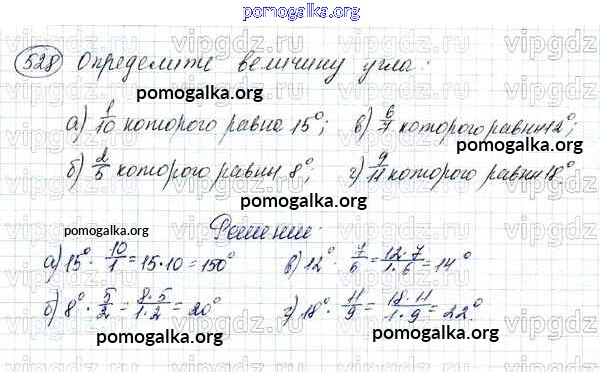 pomogalka.org
528 Определите величину угла:
pomogalka.org
а) 1/10 которого равна 15°; в) 6/7 которого равны 12°;
pomogalka.org
б) 2/5 которого равны 8°; г) 9/11 которого равны 18°
pomogalka.org
pomogalka.org Решение: pomogalka.org
а) 15° · 10/1 = 15·10 = 150° в) 12° · 7/6 = 12·7/1·6 = 14°
б) 8° · 5/2 = 8·5/1·2 = 20° г) 18° · 11/9 = 18·11/1·9 = 22°
pomogalka.org pomogalka.org
vipgdz.ru vipgdz.ru vipgdz.ru